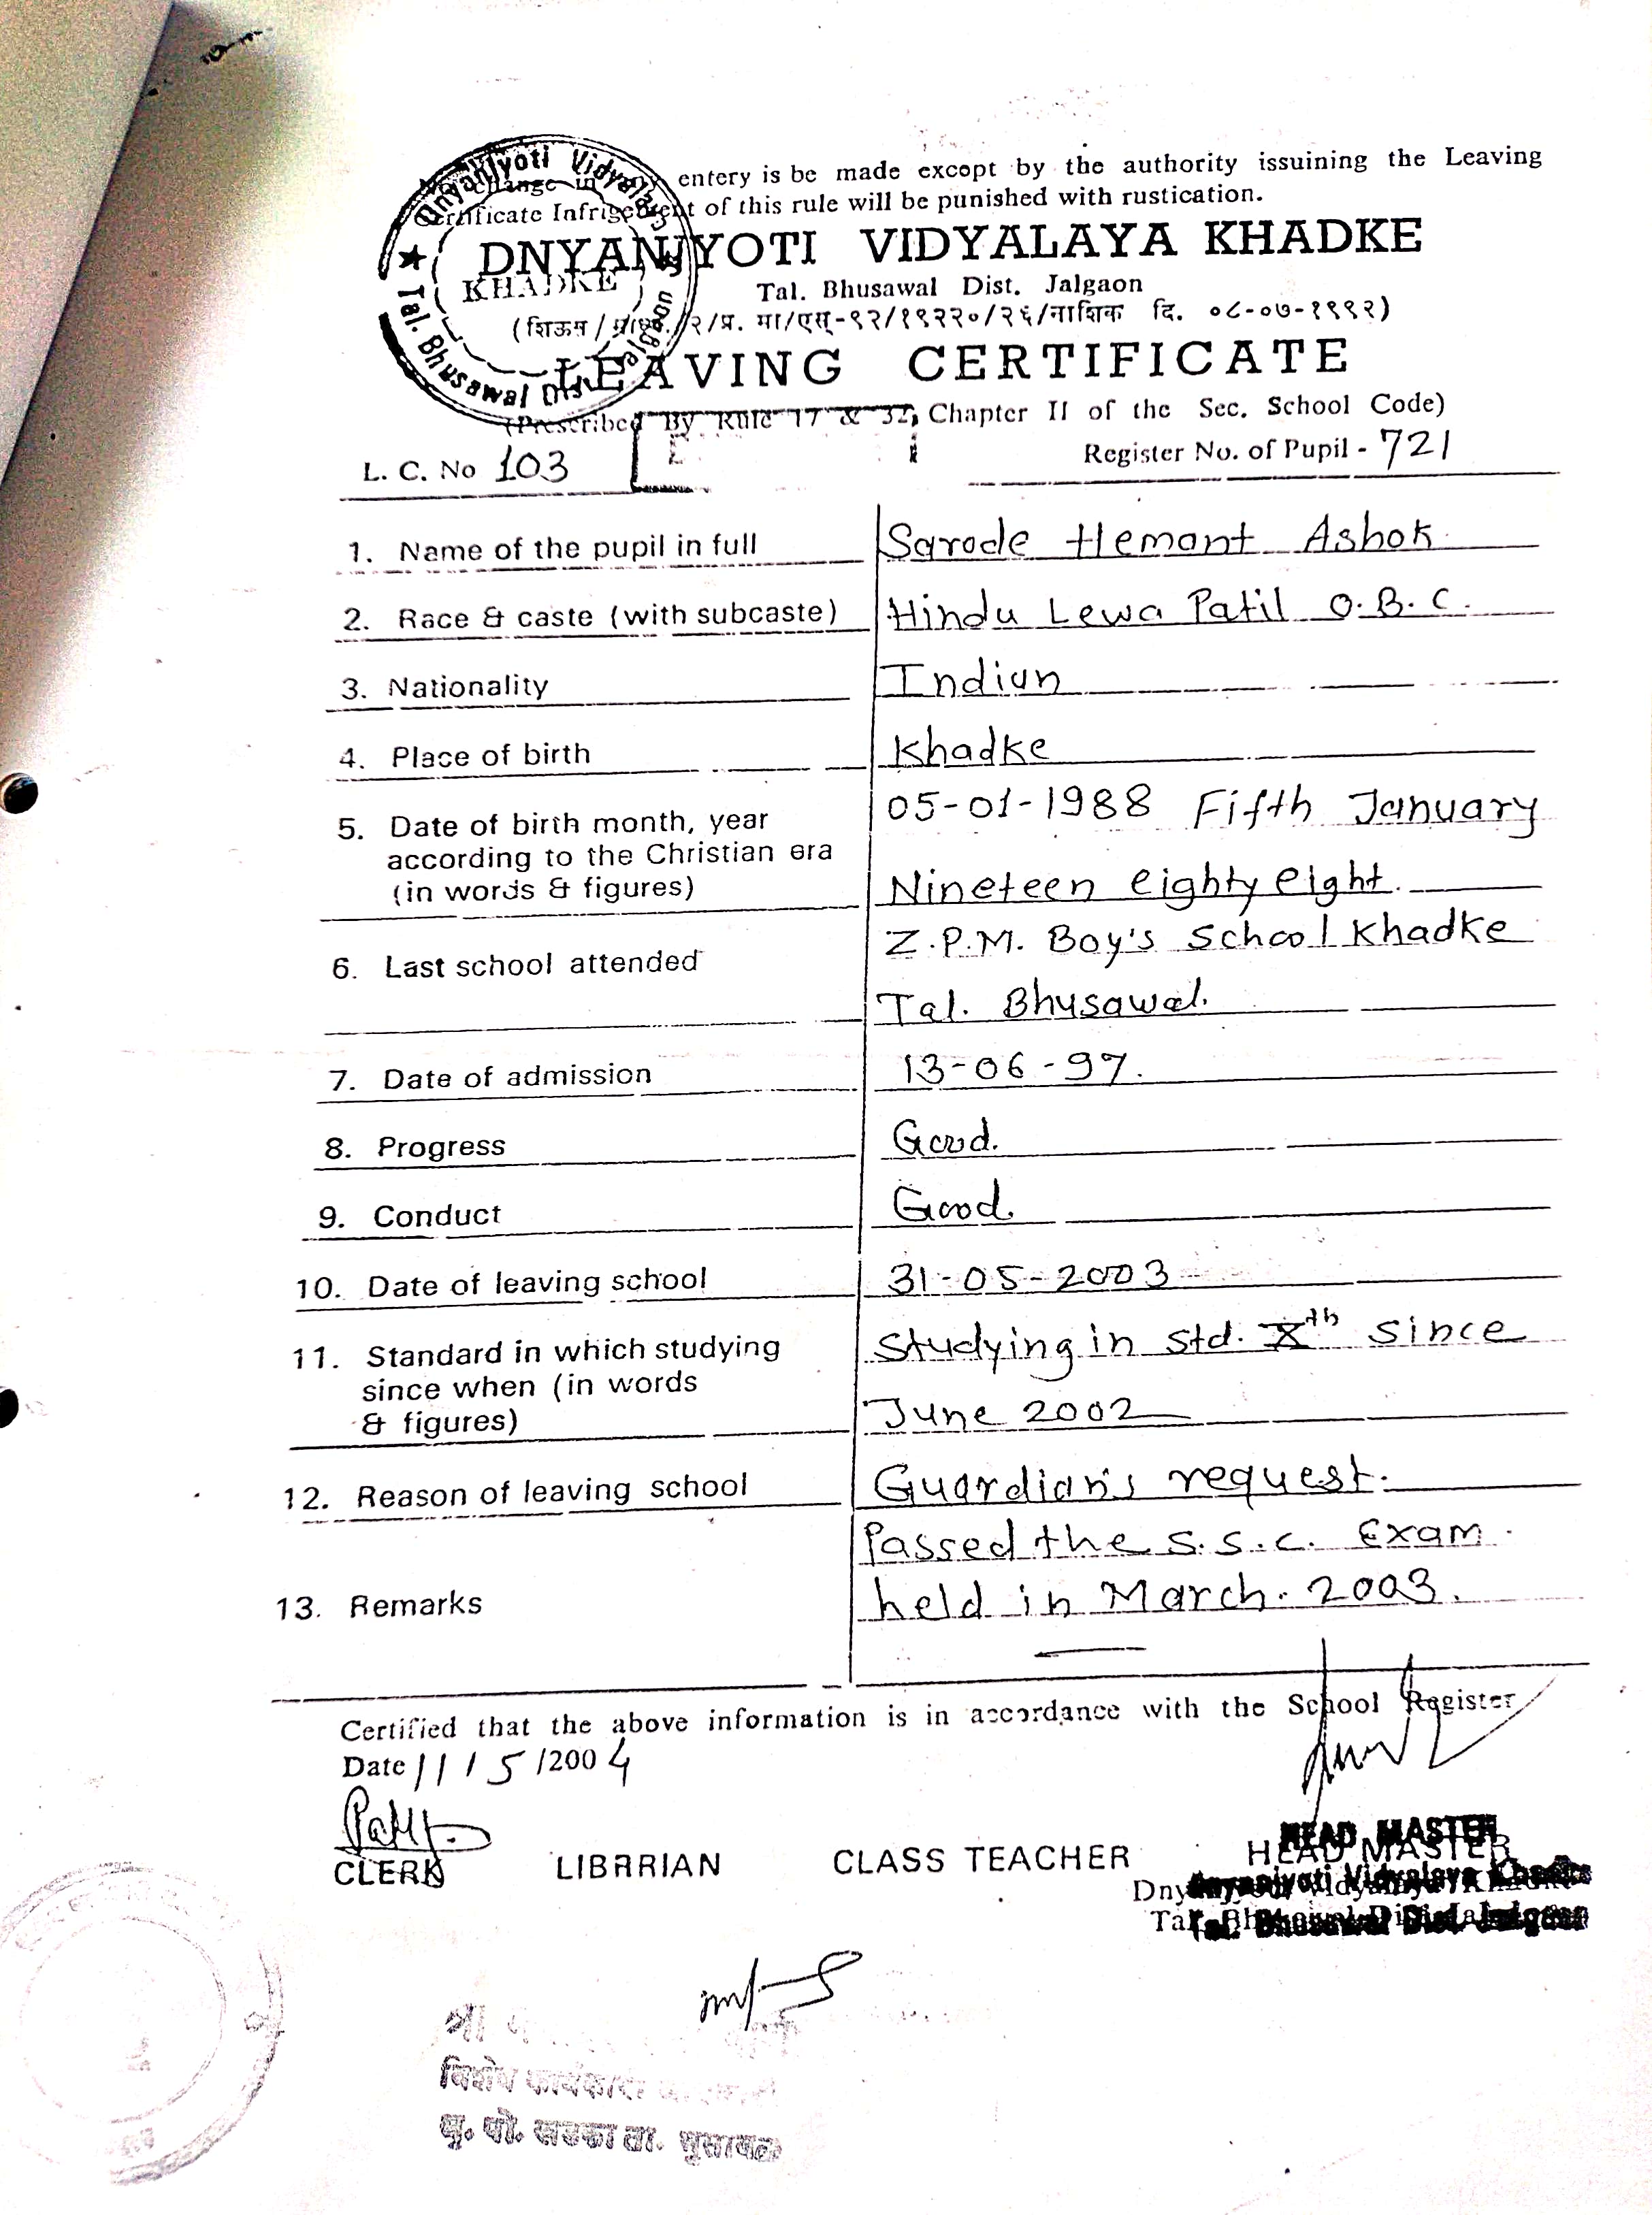 Dnyanjyoti Vidyalaya
KHADKE
Tal. Bhusawal Dist. Jalgaon
entery is be made except by the authority issuining the Leaving
Certificate Infrigement of this rule will be punished with rustication.
DNYANJYOTI VIDYALAYA KHADKE
Tal. Bhusawal Dist. Jalgaon
LEAVING CERTIFICATE
(Prescribed By Rule 17 & 32, Chapter II of the Sec. School Code)
L. C. No 103 Register No. of Pupil - 721
1. Name of the pupil in full Sarode Hemant Ashok.
2. Race & caste (with subcaste) Hindu Lewa Patil O.B.C.
3. Nationality Indian
4. Place of birth Khadke
5. Date of birth month, year 05-01-1988 Fifth January
according to the Christian era
(in words & figures) Nineteen eighty eight.
6. Last school attended Z.P.M. Boy's School Khadke
Tal. Bhusawal.
7. Date of admission 13-06-97.
8. Progress Good.
9. Conduct Good.
10. Date of leaving school 31-05-2003
11. Standard in which studying Studying in std. Xth since
since when (in words
& figures) June 2002
12. Reason of leaving school Guardian's request.
Passed the S.S.C. Exam.
13. Remarks held in March. 2003.
Certified that the above information is in accordance with the School Register
Date 11/5/2004
CLERK LIBRRIAN CLASS TEACHER HEAD MASTER
HEAD MASTER
Dnyanjyoti Vidyalaya Khadke
Tal. Bhusawal Dist. Jalgaon